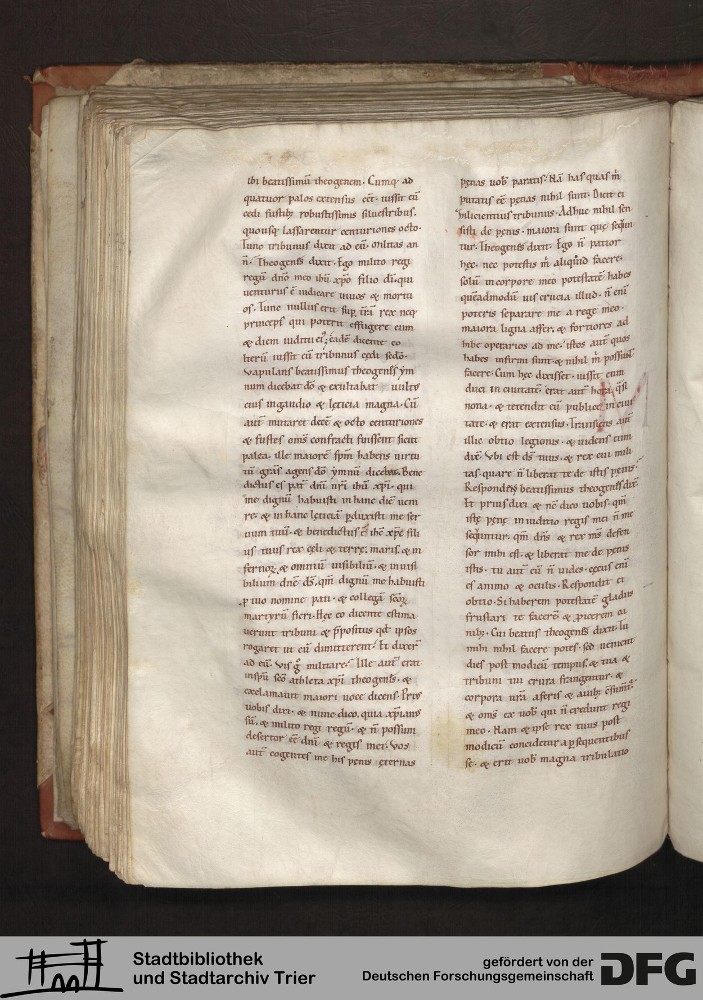 ibi beatissimū theogenem. Cumq; ad
quattuor palos extensus eēt. iussit eū
cedi fustib; robustissimis siluestribus.
quousq; lassarentur centuriones octo.
Tunc tribunus dixit ad eū. militas an
n̄. Theogenes dixit. Ego milito regi
regū dn̄o meo ihū xp̄o filio dī. qui
uenturus ē iudicare uiuos & mortu
os. Tunc nullus erit sup̱ t̄rā rex neq;
princeps qui poterit effugere eum
& diem iudicii ei'. & eadē dicente eo
iterū iussit eū tribunus cędi sedō.
Vapulans beatissimus theogenes ẏm
num dicebat dō & exultabat uultus
eius in gaudio & lęticia magna. Cū
aūt mutaret decē & octo centuriones
& fustes om̄s confracti fuissent sicut
palea. ille maiorē sp̄m habens uirtu
tū grās agens dō ẏmnū dicebat. Bene
dictus es pat̄ dn̄i nr̄i ihū xp̄i. qui
me dignū habuisti in hanc diē ueni
re. & in hanc lęticiā p̱duxisti me ser
uum tuū. & benedictus ē ihē xp̄e fili
us tuus rex cęli & terrę. maris. & in
ferioꝝ. & omniū uisibiliū. & inuisi
bilium dn̄e ds̄. qm̄ dignū me habuisti
p̱ tuo nomine pati. & collegā sc̄oꝝ
martyrū fieri. Hęc eo dicente estima
uerunt tribuni & p̄positus qd̄ ipsos
rogaret ut eū dimitterent. Et dixer̄
ad eū. Vis g̊ militare? Ille aūt erat
in sp̄u sc̄o athleta xp̄i theogenes. &
exclamauit maiori uoce dicens. Prius
uobis dixi. & nunc dico. quia xp̄ianus
sū. & milito regi regū. & n̄ possum
desertor eē dn̄i & regis mei. Vos
aūt cogentes me his penis ęternas
pęnas uob̄ paratis. Nā has quas m̄
putatis eē pęnas nihil sunt. Dicit ei
iIlicientius tribunus. Adhuc nihil sen
sisti de penis. maiora sunt quę sequn
tur. Theogenes dixit. Ego n̄ patior
hęc. nec potestis m̄ aliquid facere.
solū in corpore meo potestatē habes
quēadmodū uis crucia illud. n̄ enī
poteris separare me a rege meo.
maiora ligna affer. & fortiores ad
hibe operarios ad me. istos aūt quos
habes infirmi sunt. & nihil m̄ possunt
facere. Cum hęc dixisset. iussit eum
duci in ciuitatē. erat aūt hora q̇si
nona. & tetendit eū publice in ciui
tate. & erat extensus. Transiens aūt
illic obtio legionis. & uidens eum
dix̄. Vbi est ds̄ tuus. & rex cui mili
tas. quare n̄ liberat te de istis penis.
Respondens beatissimus theogenes dix̄.
Et prius dixi & nc̄ dico uobis. qm̄
istę pęnę in iuditio regis mei n̄ me
sequntur. qm̄ dn̄s & rex m̄s defen
sor mihi est. & liberat me de penis
istis. tu aūt eū n̄ uides. cęcus enī
es animo & oculis. Respondit ei
obtio. Si haberem potestatē gladio
frustari te facerē & ꝓicerem ca
nib;. Cui beatus theogenes dixit. Tu
mihi nihil facere potes. sed uenient
dies post modicū tempus. & tua &
tribuni tui crura frangentur. &
corpora ur̄a a feris & auib; c̄sumt̄.
& om̄s ex uob̄ qui n̄ credunt regi
meo. Nam & ipse rex tuus post
modicū concidetur a p̱sequentibus
se. & erit uob̄ magna tribulatio
Stadtbibliothek
und Stadtarchiv Trier
gefördert von der
Deutschen Forschungsgemeinschaft
DFG